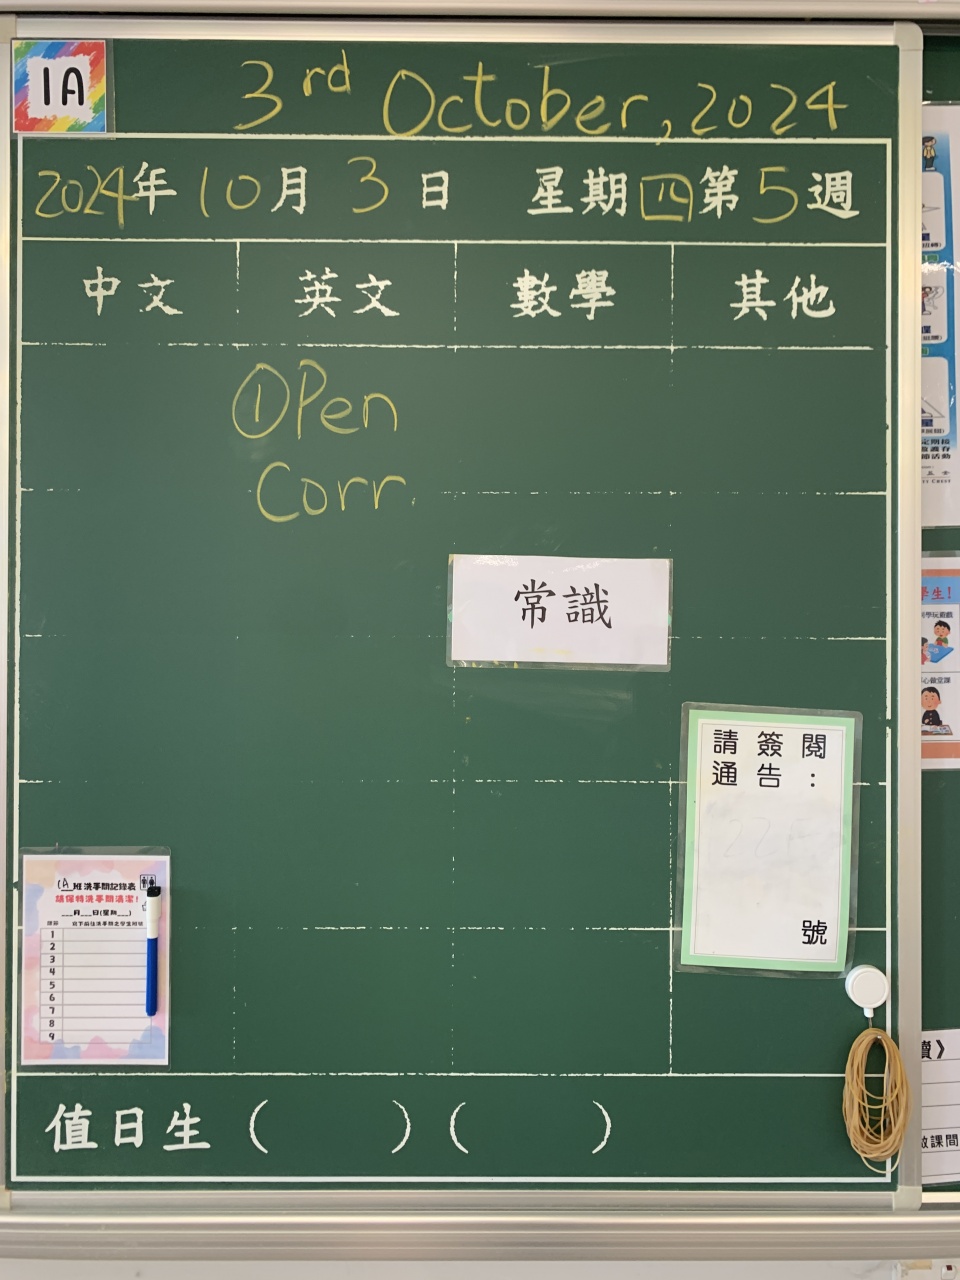 1A
3rd October, 2024
2024年 10月 3日 星期四第5週
中文 英文 數學 其他
① Pen
Corr.
常識
請簽閱
通告:
號
1A班洗手間記錄表
請保持洗手間清潔!
___月___日(星期___)
1
2
3
4
5
6
7
8
9
值日生 ( ) ( )
學生!
心做堂課
賣》
課間